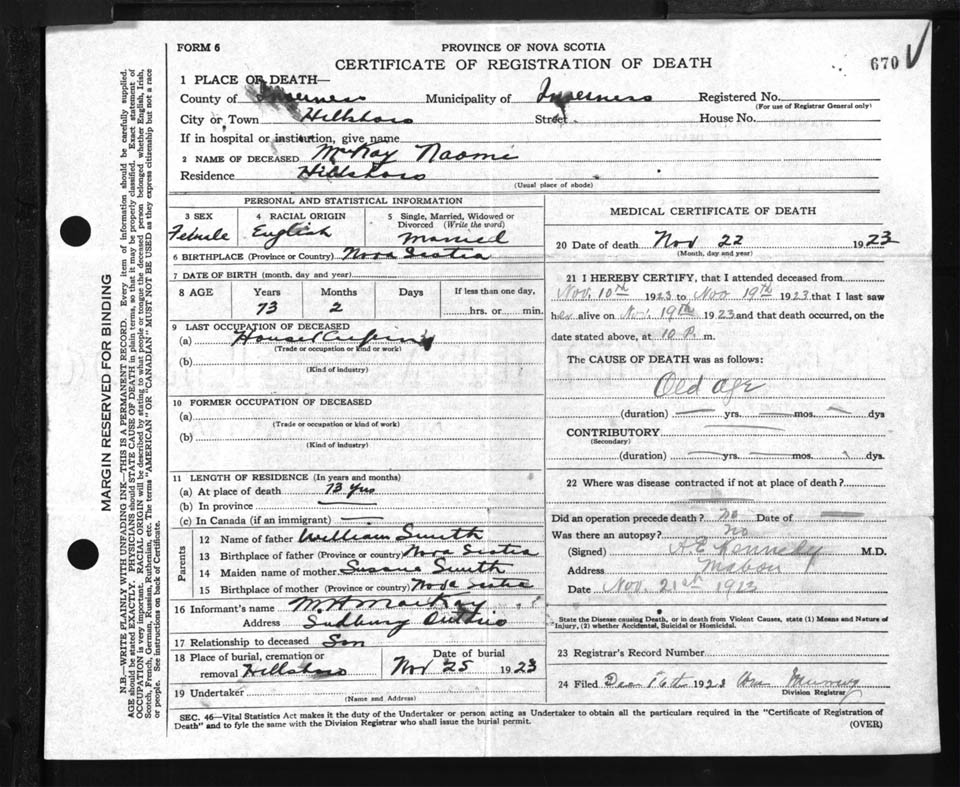 FORM 6
PROVINCE OF NOVA SCOTIA
CERTIFICATE OF REGISTRATION OF DEATH
670
1 PLACE OF DEATH—
County of Inverness Municipality of Inverness Registered No.
(For use of Registrar General only)
City or Town Hillsboro Street House No.
If in hospital or institution, give name
2 NAME OF DECEASED MacKay Naomi
Residence Hillsboro
(Usual place of abode)
PERSONAL AND STATISTICAL INFORMATION
3 SEX
Female
4 RACIAL ORIGIN
English
5 Single, Married, Widowed or Divorced (Write the word)
Married
6 BIRTHPLACE (Province or Country) Nova Scotia
7 DATE OF BIRTH (month, day and year)
8 AGE Years Months Days If less than one day,
73 2 hrs. or min.
9 LAST OCCUPATION OF DECEASED
(a) Housekeeping
(Trade or occupation or kind or work)
(b)
(Kind of industry)
10 FORMER OCCUPATION OF DECEASED
(a)
(Trade or occupation or kind of work)
(b)
(Kind of industry)
11 LENGTH OF RESIDENCE (In years and months)
(a) At place of death 73 yrs
(b) In province
(c) In Canada (if an immigrant)
Parents
12 Name of father William Smith
13 Birthplace of father (Province or country) Nova Scotia
14 Maiden name of mother Susane Smith
15 Birthplace of mother (Province or country) Nova Scotia
16 Informant's name W. H MacKay
Address Sudbury Ontario
17 Relationship to deceased Son
18 Place of burial, cremation or removal Hillsboro
Date of burial
Nov 25 1923
19 Undertaker
(Name and Address)
MEDICAL CERTIFICATE OF DEATH
20 Date of death Nov 22 1923
(Month, day and year)
21 I HEREBY CERTIFY, that I attended deceased from
Nov. 10th 1923 to Nov 19th 1923 that I last saw
her alive on Nov. 19th 1923 and that death occurred, on the
date stated above, at 10 P. m.
The CAUSE OF DEATH was as follows:
Old age
(duration) yrs. mos. dys
CONTRIBUTORY
(Secondary)
(duration) yrs. mos. dys.
22 Where was disease contracted if not at place of death?
Did an operation precede death? no Date of
Was there an autopsy? no
(Signed) Kennedy M.D.
Address Mabou
Date Nov. 21st 1923
State the Disease causing Death, or in death from Violent Causes, state (1) Means and Nature of
Injury, (2) whether Accidental, Suicidal or Homicidal.
23 Registrar's Record Number
24 Filed Dec 1923
Division Registrar
SEC. 46—Vital Statistics Act makes it the duty of the Undertaker or person acting as Undertaker to obtain all the particulars required in the "Certificate of Registration of
Death" and to fyle the same with the Division Registrar who shall issue the burial permit.
(OVER)
MARGIN RESERVED FOR BINDING
N.B.—WRITE PLAINLY WITH UNFADING INK—THIS IS A PERMANENT RECORD. Every item of information should be carefully supplied.
AGE should be stated EXACTLY. PHYSICIANS should STATE CAUSE OF DEATH in plain terms, so that it may be properly classified. Exact statement of
OCCUPATION is very important. RACIAL ORIGIN will be described by stating to what people or tongue the deceased person belonged whether English, Irish,
Scotch, French, German, Russian, Ruthenian, etc. The terms "AMERICAN" OR "CANADIAN" MUST NOT BE USED as they express citizenship but not a race
or people. See instructions on back of Certificate.